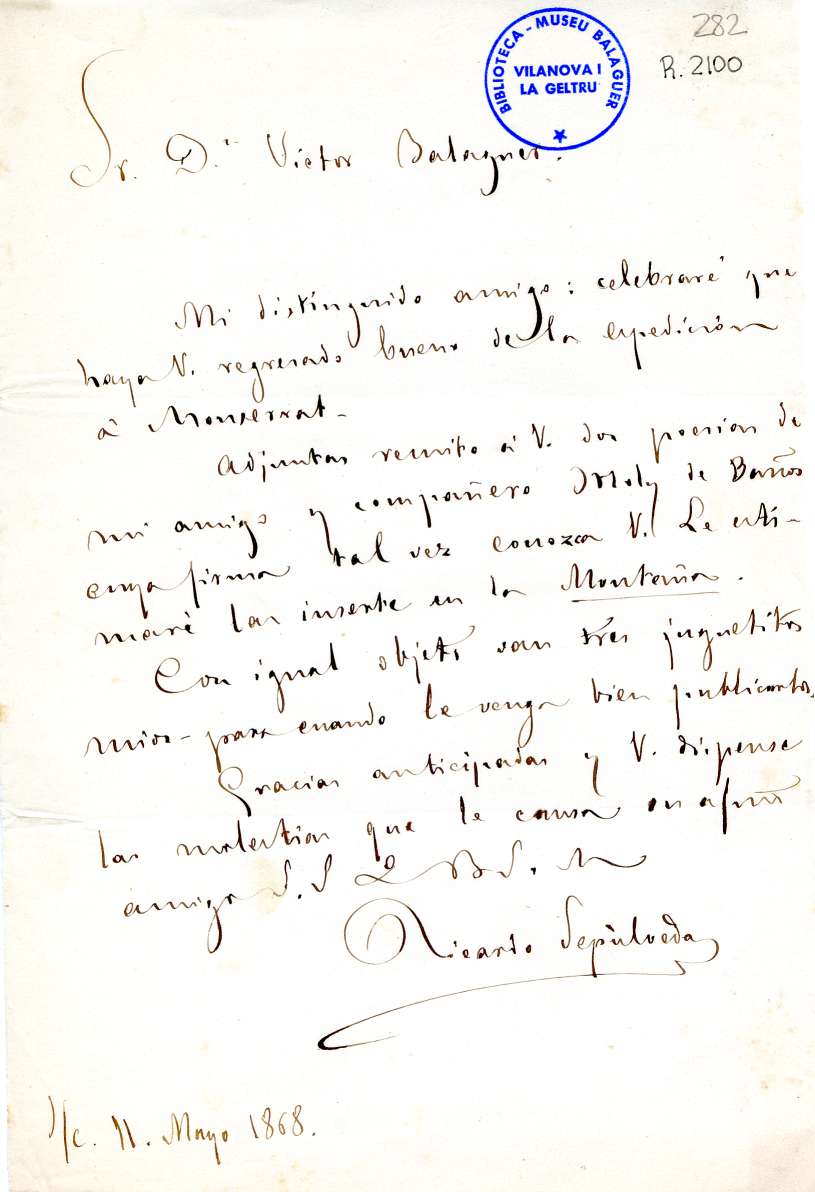 282
R. 2100
BIBLIOTECA - MUSEU BALAGUER
VILANOVA I
LA GELTRU
Sr. D.n Victor Balaguer.
Mi distinguido amigo: celebraré que
haya V. regresado bueno de la espedición
á Monserrat-
Adjuntas remito á V. dos poesias de
mi amigo y compañero de Baños
cuya firma tal vez conozca V. Le esti-
maré las inserte en la Montaña.
Con igual objeto van tres juguetitos
mios- para cuando le venga bien publicarlos.
Gracias anticipadas y V. dispense
las molestias que le causa su afmo
amigo S.S Q B S. M
Ricardo Sepúlveda
S/c. 11. Mayo 1868.